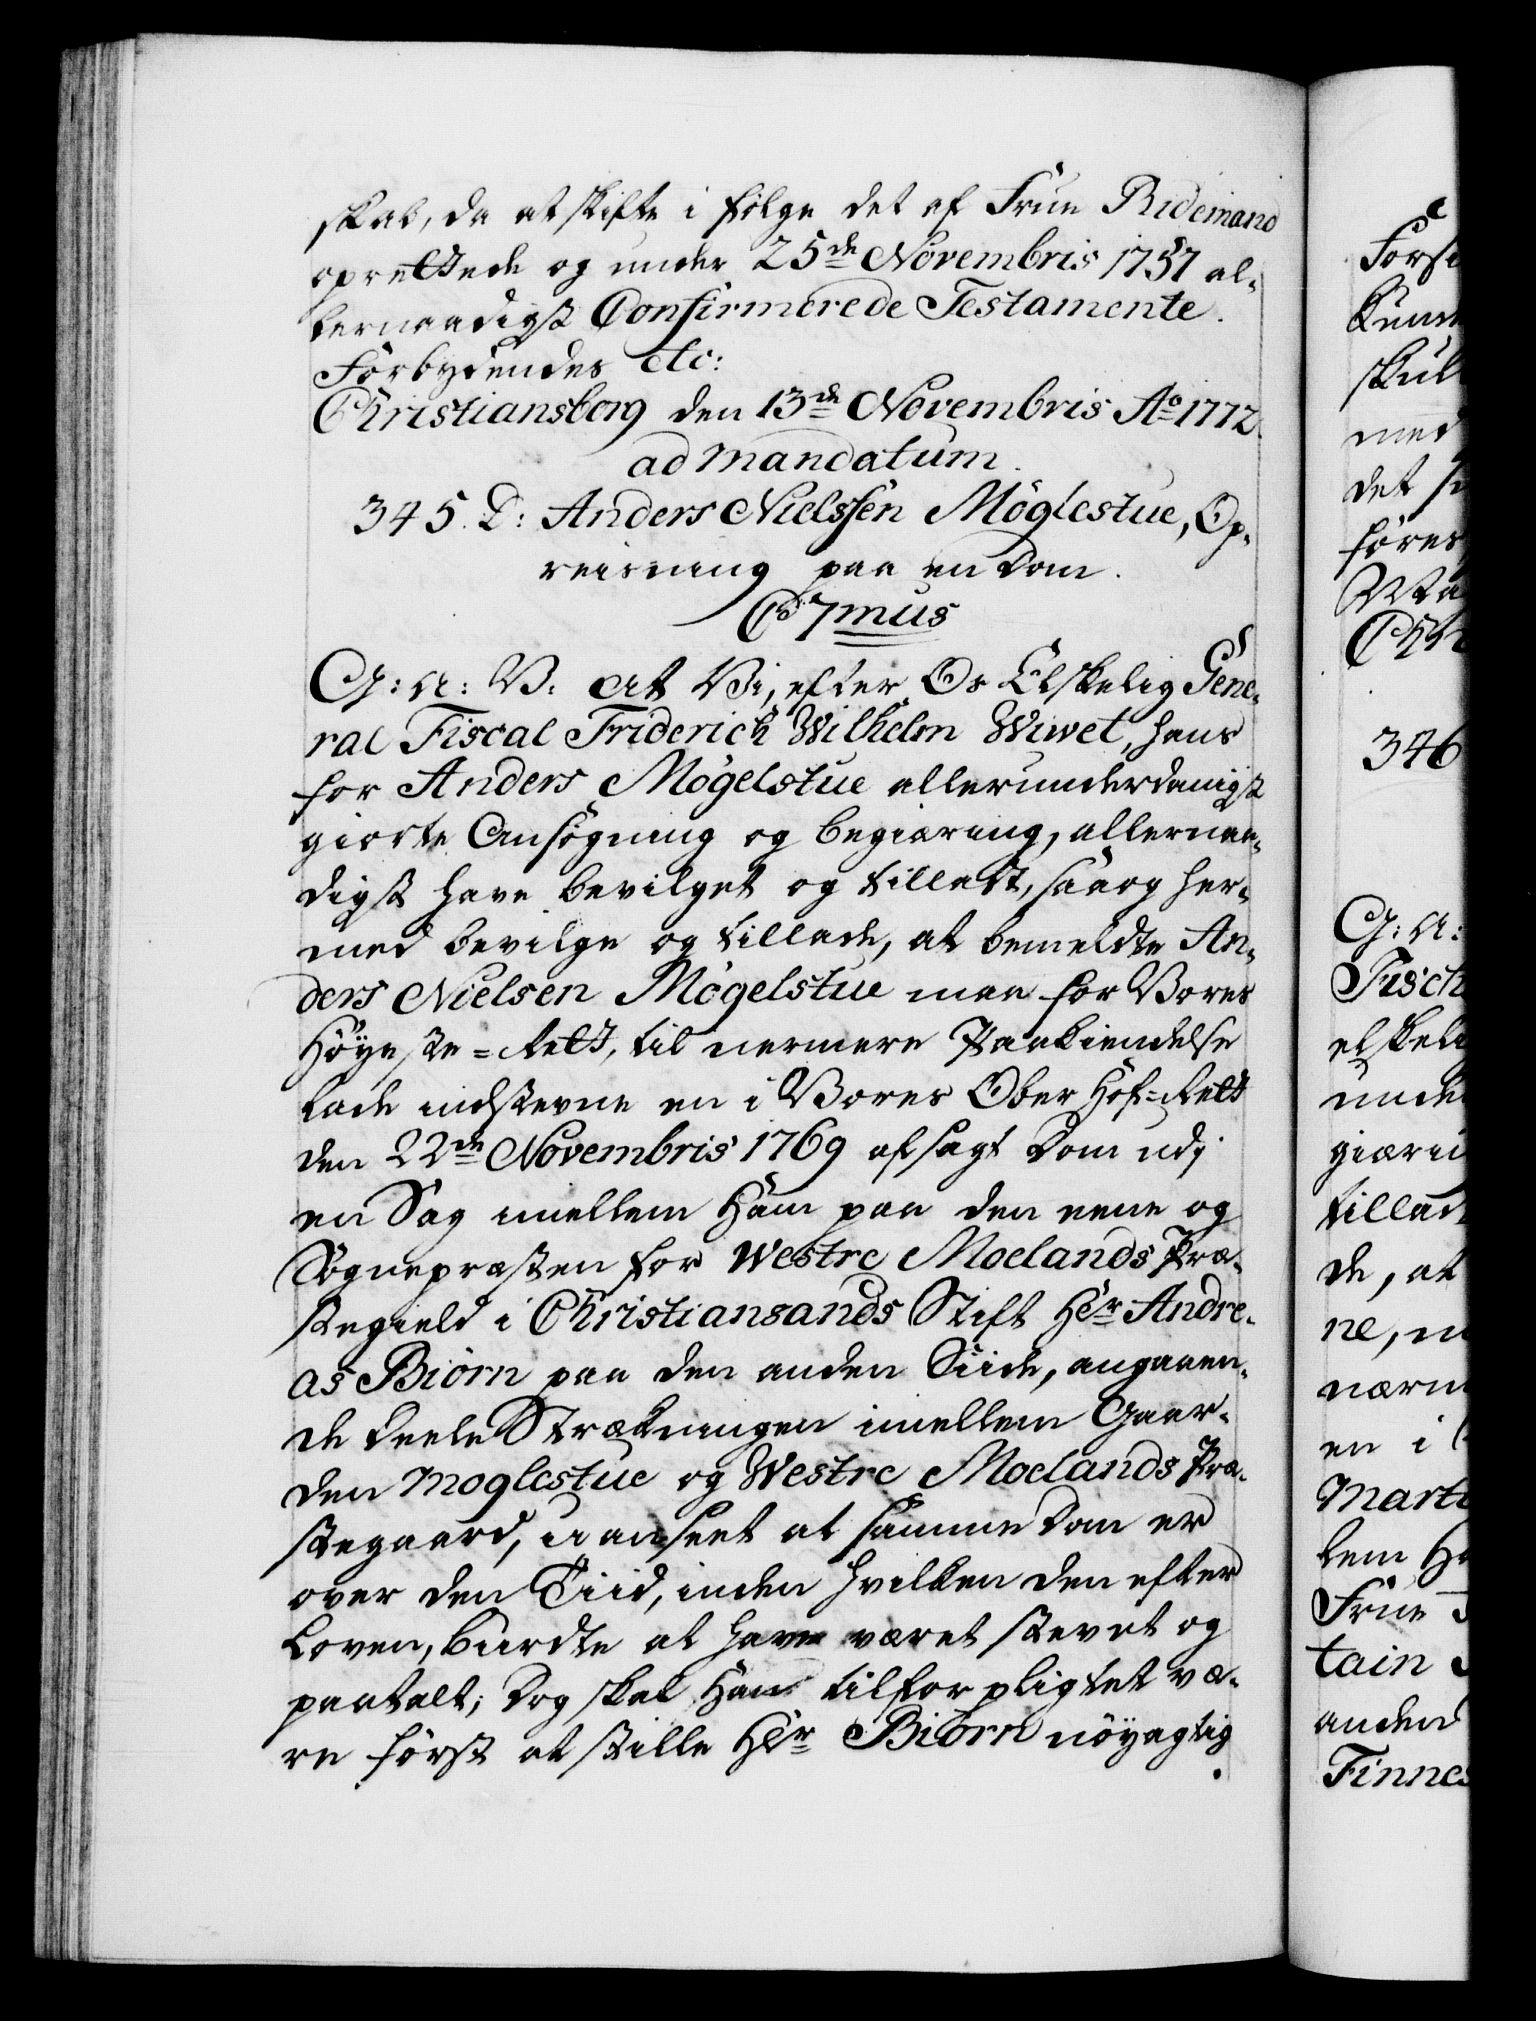 skab, da at skifte i følge det af Frue Ridemand
oprettede og under 25de Novembris 1757 al-
lernaadigst Confirmerede Testamente.
Forbydendes etc:
Christiansborg den 13de Novembris Ao 1772.
ad mandatum.
345. D: Anders Nielssen Møglestue, Op-
reisning paa en Dom.
C 7mus
G: A: V: At Vi, efter Os Elskelig Gene-
ral Fiscal Friderich Wilhelm Wiwet, hans
for Anders Møgelstue allerunderdanigst
giorte Ansøgning og begiæring, allernaa-
digst have bevilget og tilladt, saa og her-
med bevilge og tillade, at bemeldte An-
ders Nielsen Møgelstue maa for Vores
Høyeste-Rett, til nermere Paakiendelse
lade indstevne en i Vores Ober Hof-Rett
den 22de Novembris 1769 afsagt Dom udj
en Sag imellem Ham paa den eene og
Sognepræsten for Westre Moelands Præ-
stegield i Christiansands Stift Hr Andre-
as Biørn paa den anden Siide, angaaen-
de Deele Strækningen imellem Gaar-
den Moglestue og Westre Moelands Præ-
stegaard, uanseet at samme Dom er
over den Tiid, inden hvilken den efter
Loven, burdte at have været stevnet og
paatalt; Dog skal Han tilforpligtet væ-
re først at stille Hr Biørn nøyagtig
346